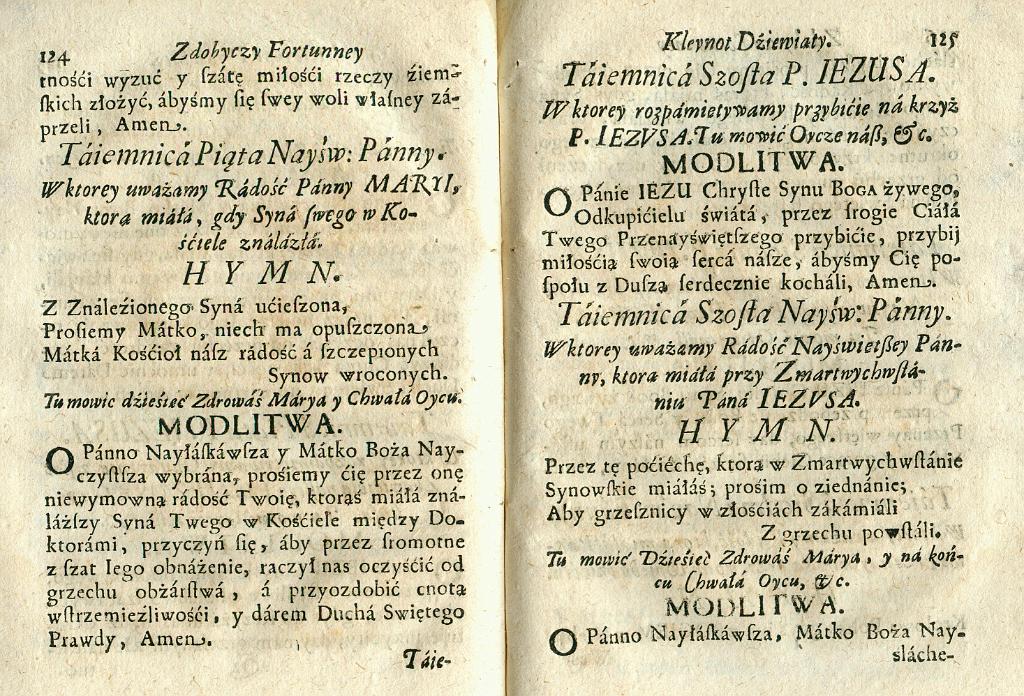 124 Zdobyczy Fortunney
tnośći wyzuć y ſzátę miłośći rzeczy źiem-
ſkich złożyć, ábyśmy ſię ſwey woli włáſney zá-
przeli, Amen.
Táiemnicá Piąta Nayśw: Pánny.
W ktorey uważamy Rádość Pánny MARYI,
ktorą miáłá, gdy Syná ſwego w Ko-
śćiele ználázłá.
HYMN.
Z Ználeźionego Syná ućieſzona,
Proſiemy Mátko, niech ma opuſzczona,
Mátká Kośćioł náſz rádość á ſzczepionych
Synow wroconych.
Tu mowic dźieśieć Zdrowáś Márya y Chwałá Oycu.
MODLITWA.
O Pánno Nayłáſkáwſza y Mátko Boża Nay-
czyſtſza wybrána, prośiemy ćię przez onę
niewymowną rádość Twoię, ktorąś miáłá zná-
lázſzy Syná Twego w Kośćiele między Do-
ktorámi, przyczyń ſię, áby przez ſromotne
z ſzat Iego obnáżenie, raczył nas oczyśćić od
grzechu obżárſtwá, á przyozdobić cnotą
wſtrzemieźliwośći, y dárem Duchá Swiętego
Prawdy, Amen.
Táie-
Kleynot Dźiewiąty. 125
Táiemnicá Szoſta P. IEZUSA.
W ktorey rozpámietywamy przybićie ná krzyż
P. IEZVSA. Tu mowić Oycze náß, &c.
MODLITWA.
O Pánie IEZU Chryſte Synu BOGA żywego,
Odkupićielu świátá, przez ſrogie Ciáłá
Twego Przenayświętſzego przybićie, przybij
miłośćią ſwoią ſercá náſze, ábyśmy Cię po-
ſpołu z Duſzą ſerdecznie kocháli, Amen.
Táiemnicá Szoſta Nayśw: Pánny.
W ktorey uważamy Rádość Nayświetßey Pán-
ny, ktorą miáłá przy Zmartwychwſtá-
niu Páná IEZVSA.
HYMN.
Przez tę poćiechę, ktorą w Zmartwychwſtánie
Synowſkie miáłáś; proſim o ziednánie;
Aby grzeſznicy w złośćiach zákámiáli
Z grzechu powſtáli.
Tu mowić Dźieśieć Zdrowáś Márya, y ná koń-
cu Chwałá Oycu, &c.
MODLITWA.
O Pánno Nayłáſkáwſza, Mátko Boża Nay-
sláche-